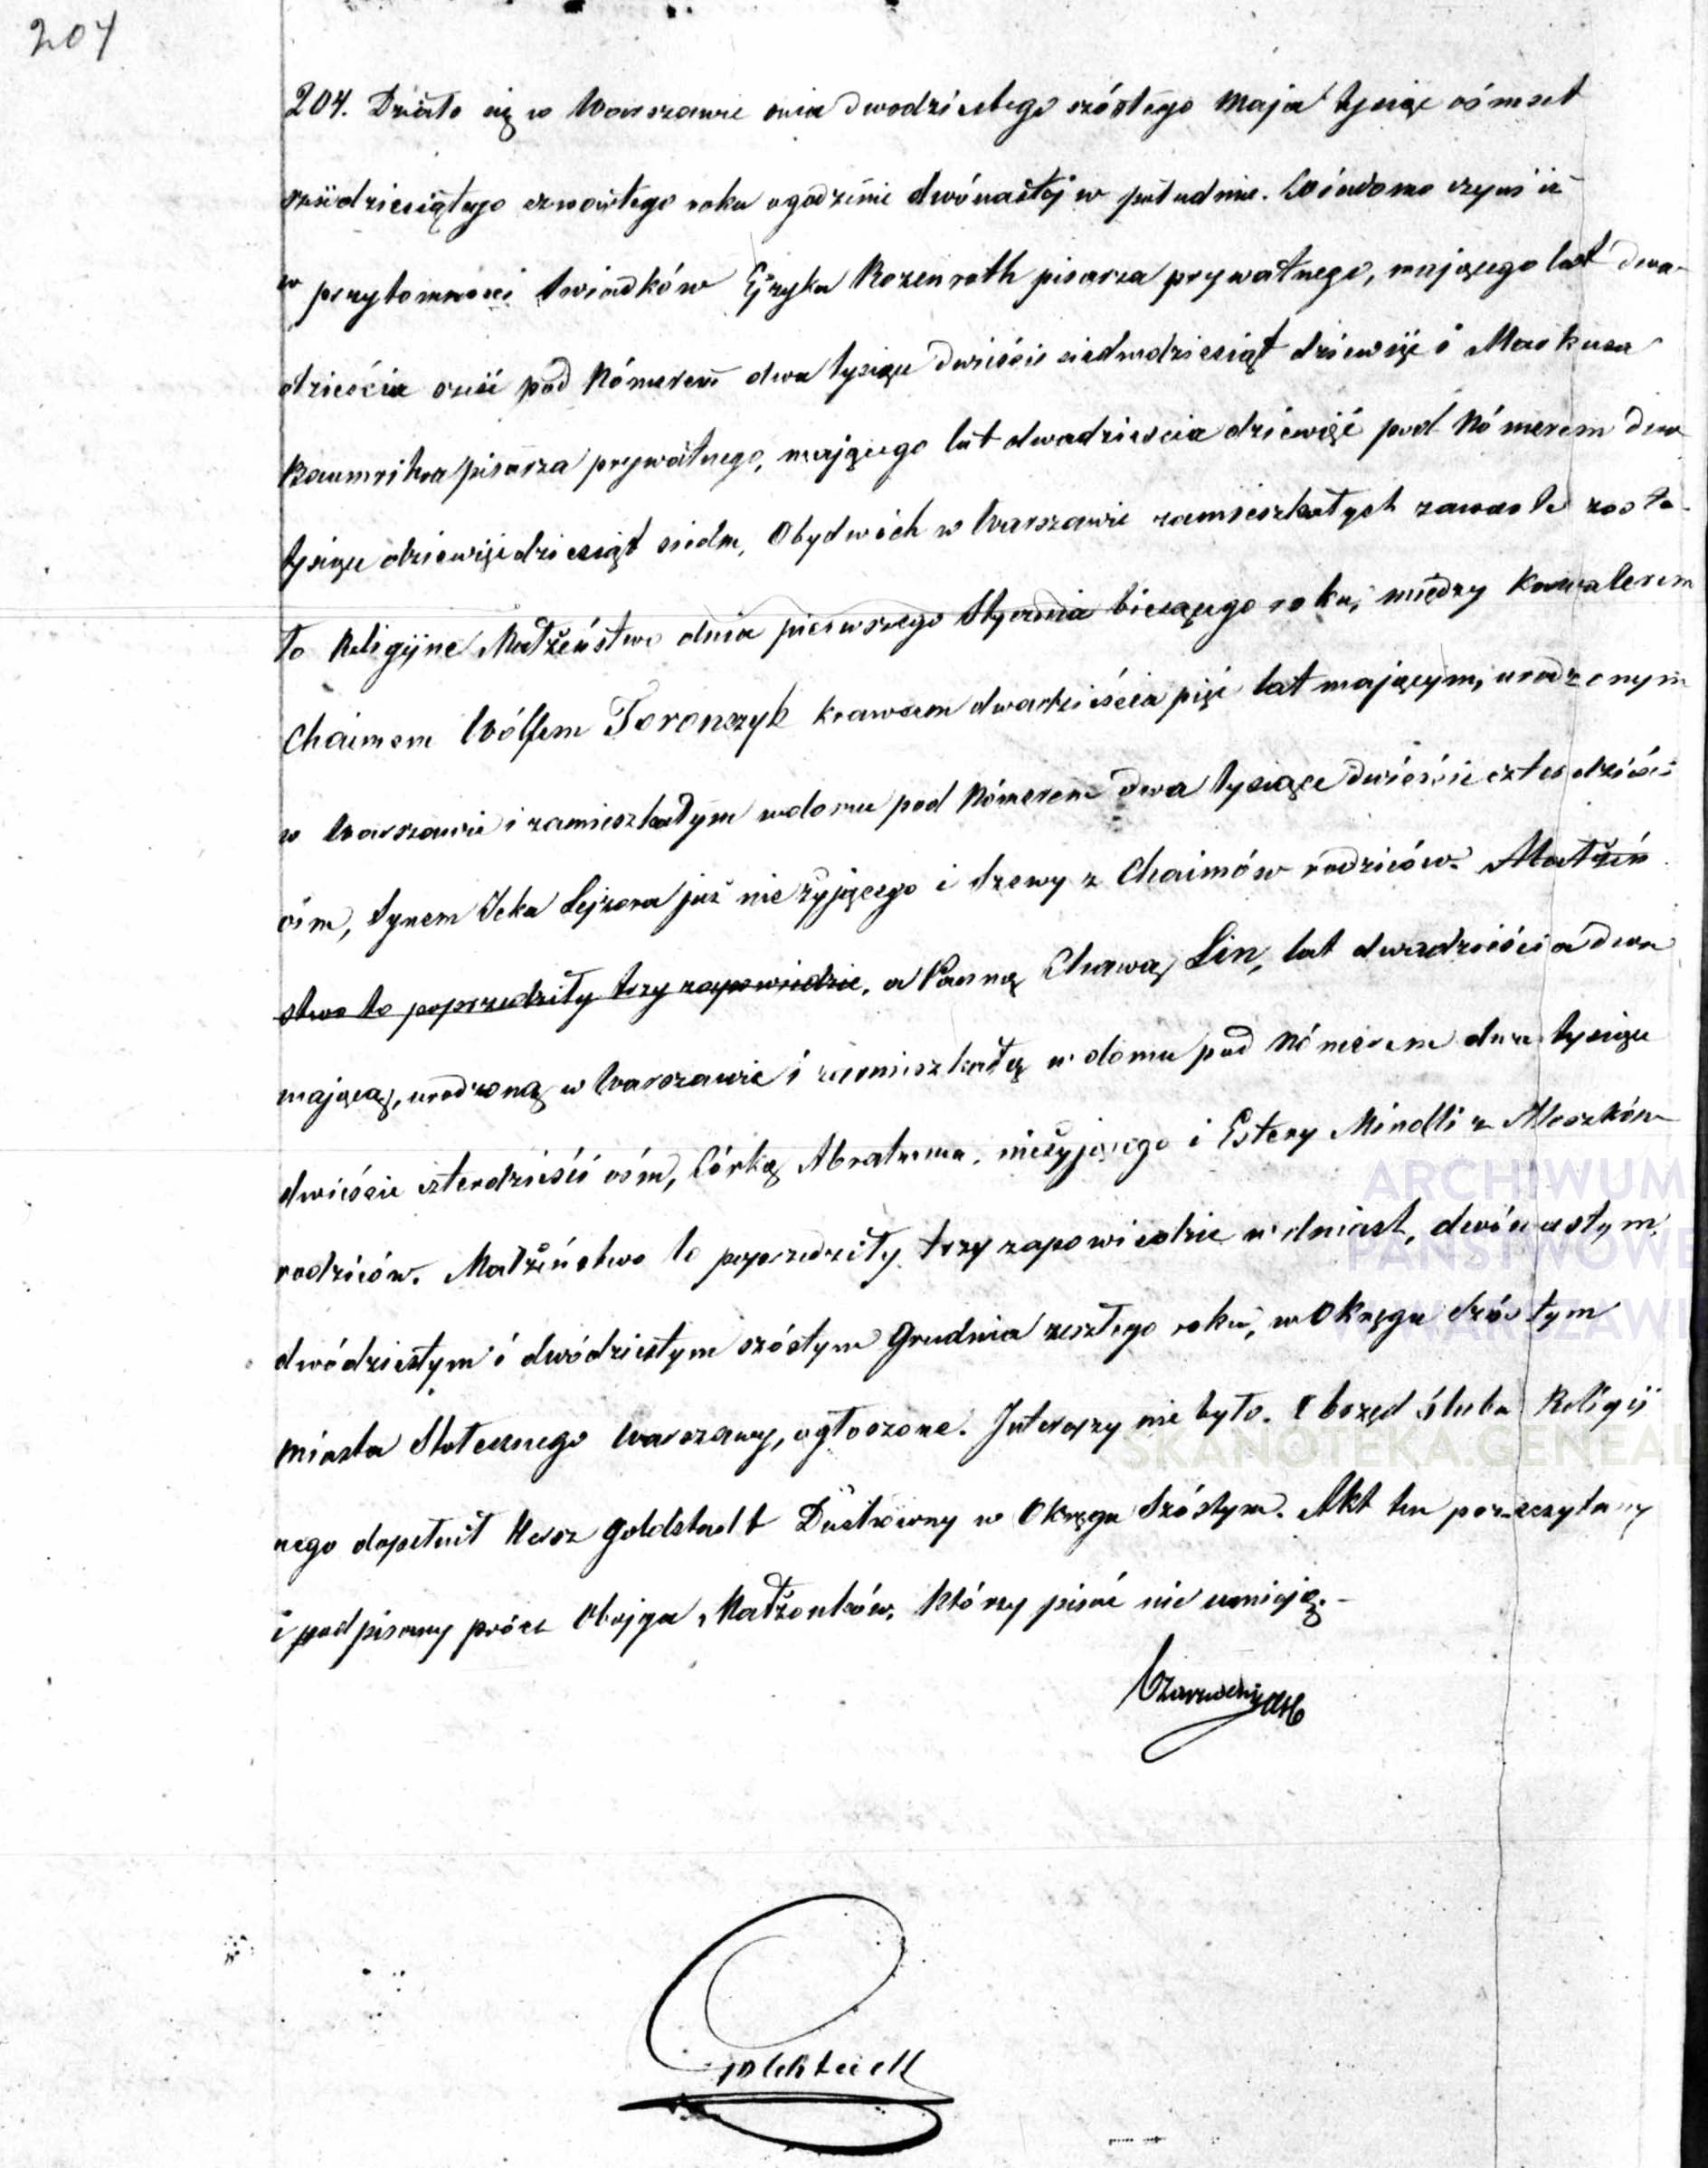 204
204. Działo się w Warszawie dnia dwodziestego szóstego Maja tysiąc ośmset
sześdziesiątego czwartego roku o godzinie dwónastej w południe. Wiadomo czyni iż
w przytomności Swiadków Eyzyka Rozenroth pisarza prywatnego, mającego lat dwa-
dzieścia sześć pod Nómerem dwa tysiące dwieście siedmdziesiąt dziewięć i Markusa
Baumritra pisarza prywatnego, mającego lat dwadzieścia dziewięć pod Nómerem dwa
tysiące dziewięćdziesiąt siedm, Obydwóch w Warszawie zamieszkałych zawarte zosta-
ło Religijne Małżeństwo dnia pierwszego Stycznia bieżącego roku, między Kawalerem
Chaimem Wólfem Toronczyk krawcem dwadzieścia pięć lat mającym, urodzonym
w Warszawie i zamieszkałym w domu pod Nómerem dwa tysiące dwieście czterdzieści
óśm, Synem Icka Lejzora już nie żyjącego i Szewy z Chaimów rodziców. Małżeń
stwo to poprzedziły trzy zapowiedzie, a Panną Chawą Lin, lat dwadzieścia dwa
mającą, urodzoną w Warszawie i zamieszkałą w domu pod Nómerem dwa tysiące
dwieście czterdzieści ośm, Córką Abrahama nieżyjącego i Estery Mindli z Moszków
rodziców. Małżeństwo to poprzedziły trzy zapowiedzie w dniach, dwónastym,
dwódziestym i dwódziestym szóstym Grudnia zeszłego roku, w Okręgu Szóstym
Miasta Stołecznego Warszawy, ogłoszone. Intercyzy nie było. Obrzęd ślubu Religij
nego dopełnił Hersz Goldstadt Duchowny w Okręgu Szóstym. Akt ten przeczytany
i podpisany prócz Obojga Małżonków, Którzy pisać nie umieją.-
ARCHIWUM
PAŃSTWOWE
W WARSZAWI
SKANOTEKA.GENEAL